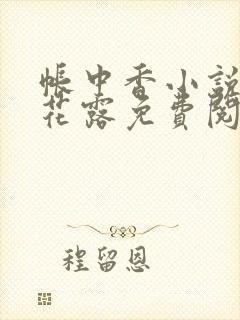 帳中香小說
花露免費閱
程留恩